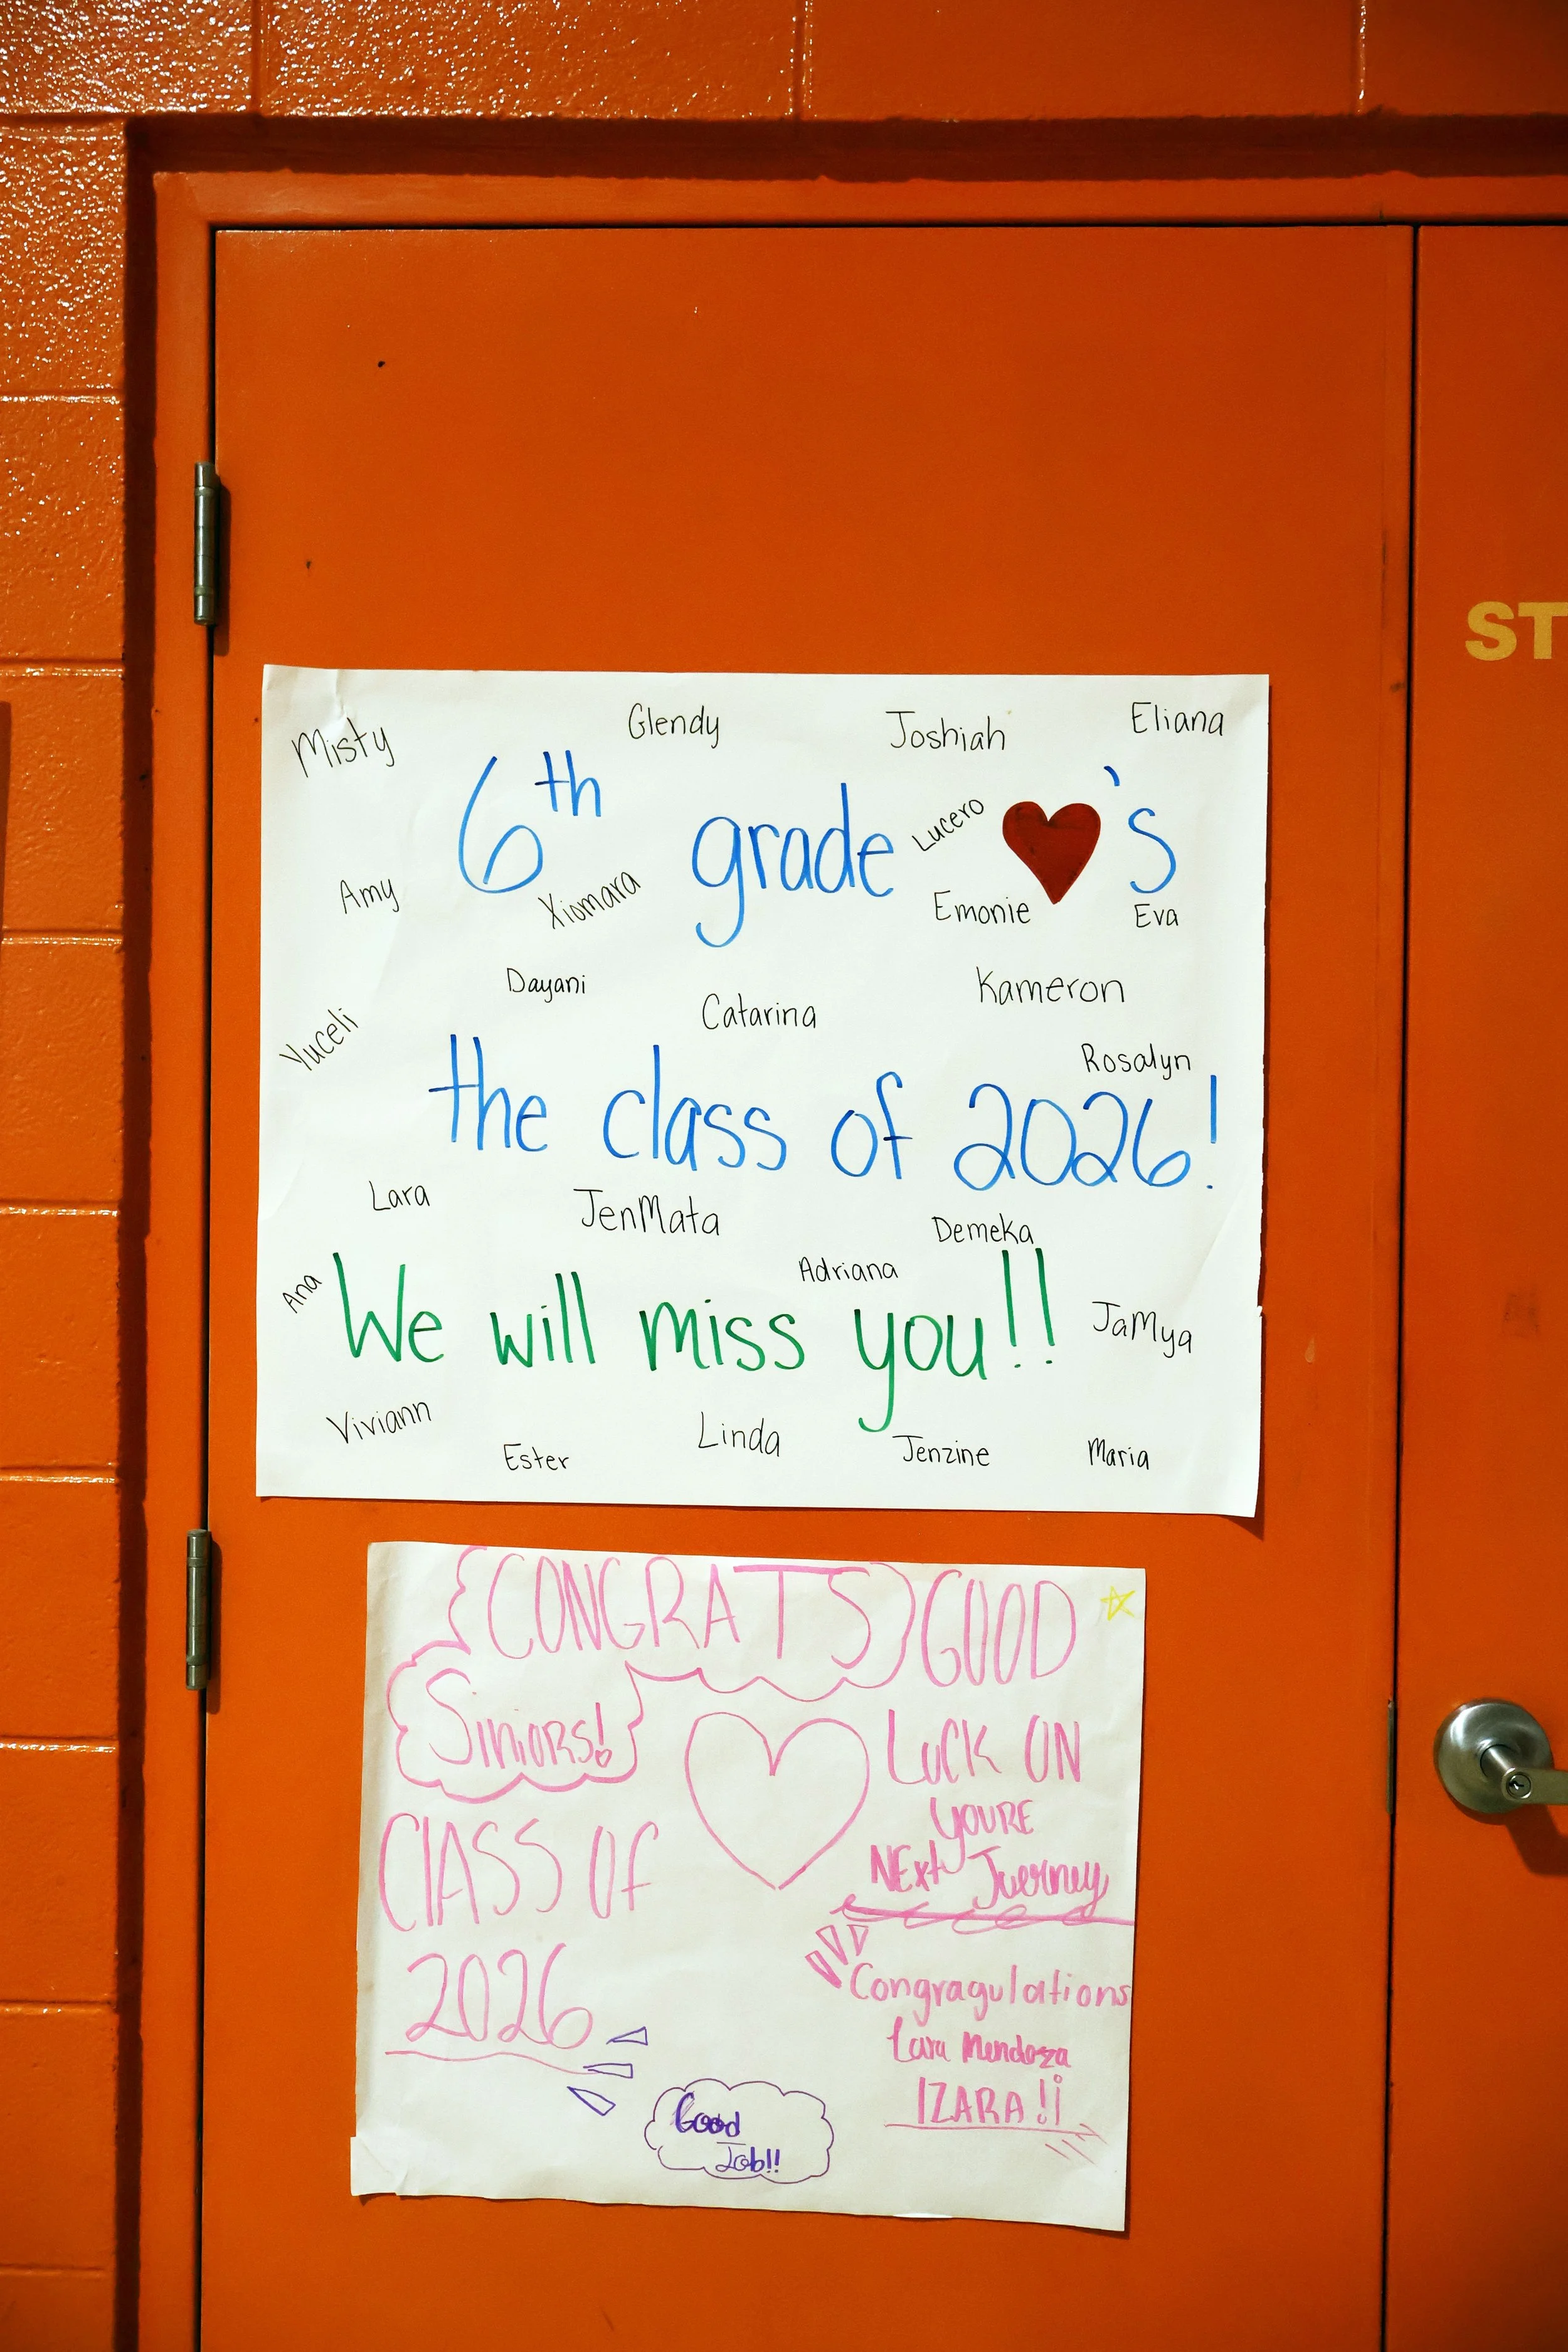 Misty
Glendy
Joshiah
Eliana
6th grade ❤'s
Lucero
Amy
Xiomara
Emonie
Eva
Dayani
Catarina
Kameron
Yuceli
Rosalyn
the class of 2026!
Lara
JenMata
Demeka
Adriana
Ana
We will miss you!!
JaMya
Viviann
Ester
Linda
Jenzine
Maria
ST
CONGRATS
Siniors!
CLASS Of
2026
GOOD
LuCK ON
YOURE
NExt Juerney
Congragulations
Lara Mendoza
IZARA!¡
Good
Job!!